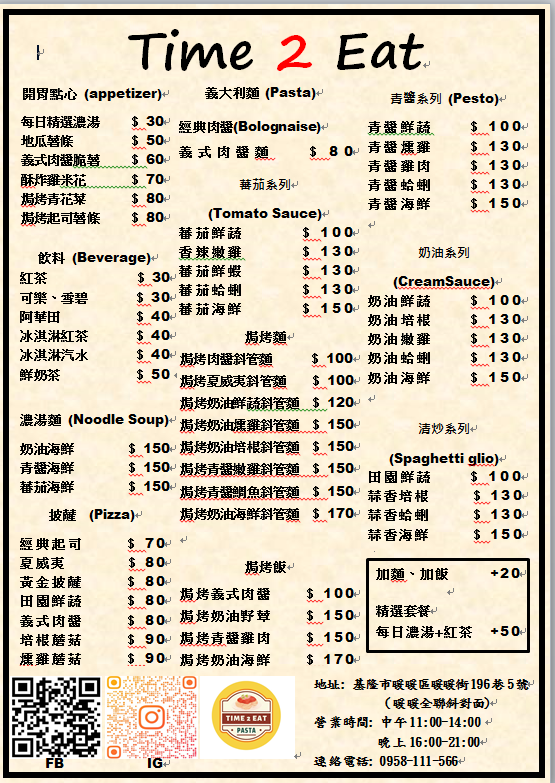 Time 2 Eat
開胃點心 (appetizer)
每日精選濃湯 $ 30
地瓜薯條 $ 50
義式肉醬脆薯 $ 60
酥炸雞米花 $ 70
焗烤青花菜 $ 80
焗烤起司薯條 $ 80
飲料 (Beverage)
紅茶 $ 30
可樂、雪碧 $ 30
阿華田 $ 40
冰淇淋紅茶 $ 40
冰淇淋汽水 $ 40
鮮奶茶 $ 50
濃湯麵 (Noodle Soup)
奶油海鮮 $ 150
青醬海鮮 $ 150
蕃茄海鮮 $ 150
披薩 (Pizza)
經典起司 $ 70
夏威夷 $ 80
黃金披薩 $ 80
田園鮮蔬 $ 80
義式肉醬 $ 80
培根蘑菇 $ 90
燻雞蘑菇 $ 90
義大利麵 (Pasta)
經典肉醬(Bolognaise)
義式肉醬麵 $ 80
蕃茄系列
(Tomato Sauce)
蕃茄鮮蔬 $ 100
香辣嫩雞 $ 130
蕃茄鮮蝦 $ 130
蕃茄蛤蜊 $ 130
蕃茄海鮮 $ 150
焗烤麵
焗烤肉醬斜管麵 $ 100
焗烤夏威夷斜管麵 $ 100
焗烤奶油鮮蔬斜管麵 $ 120
焗烤奶油燻雞斜管麵 $ 150
焗烤奶油培根斜管麵 $ 150
焗烤青醬嫩雞斜管麵 $ 150
焗烤青醬鯛魚斜管麵 $ 150
焗烤奶油海鮮斜管麵 $ 170
焗烤飯
焗烤義式肉醬 $ 100
焗烤奶油野蕈 $ 150
焗烤青醬雞肉 $ 150
焗烤奶油海鮮 $ 170
青醬系列 (Pesto)
青醬鮮蔬 $ 100
青醬燻雞 $ 130
青醬雞肉 $ 130
青醬蛤蜊 $ 130
青醬海鮮 $ 150
奶油系列
(CreamSauce)
奶油鮮蔬 $ 100
奶油培根 $ 130
奶油嫩雞 $ 130
奶油蛤蜊 $ 130
奶油海鮮 $ 150
清炒系列
(Spaghetti glio)
田園鮮蔬 $ 100
蒜香培根 $ 130
蒜香蛤蜊 $ 130
蒜香海鮮 $ 150
加麵、加飯 +20
精選套餐
每日濃湯+紅茶 +50
FB
IG
TIME 2 EAT
PASTA
地址: 基隆市暖暖區暖暖街196巷5號
(暖暖全聯斜對面)
營業時間: 中午11:00-14:00
晚上16:00-21:00
連絡電話: 0958-111-566